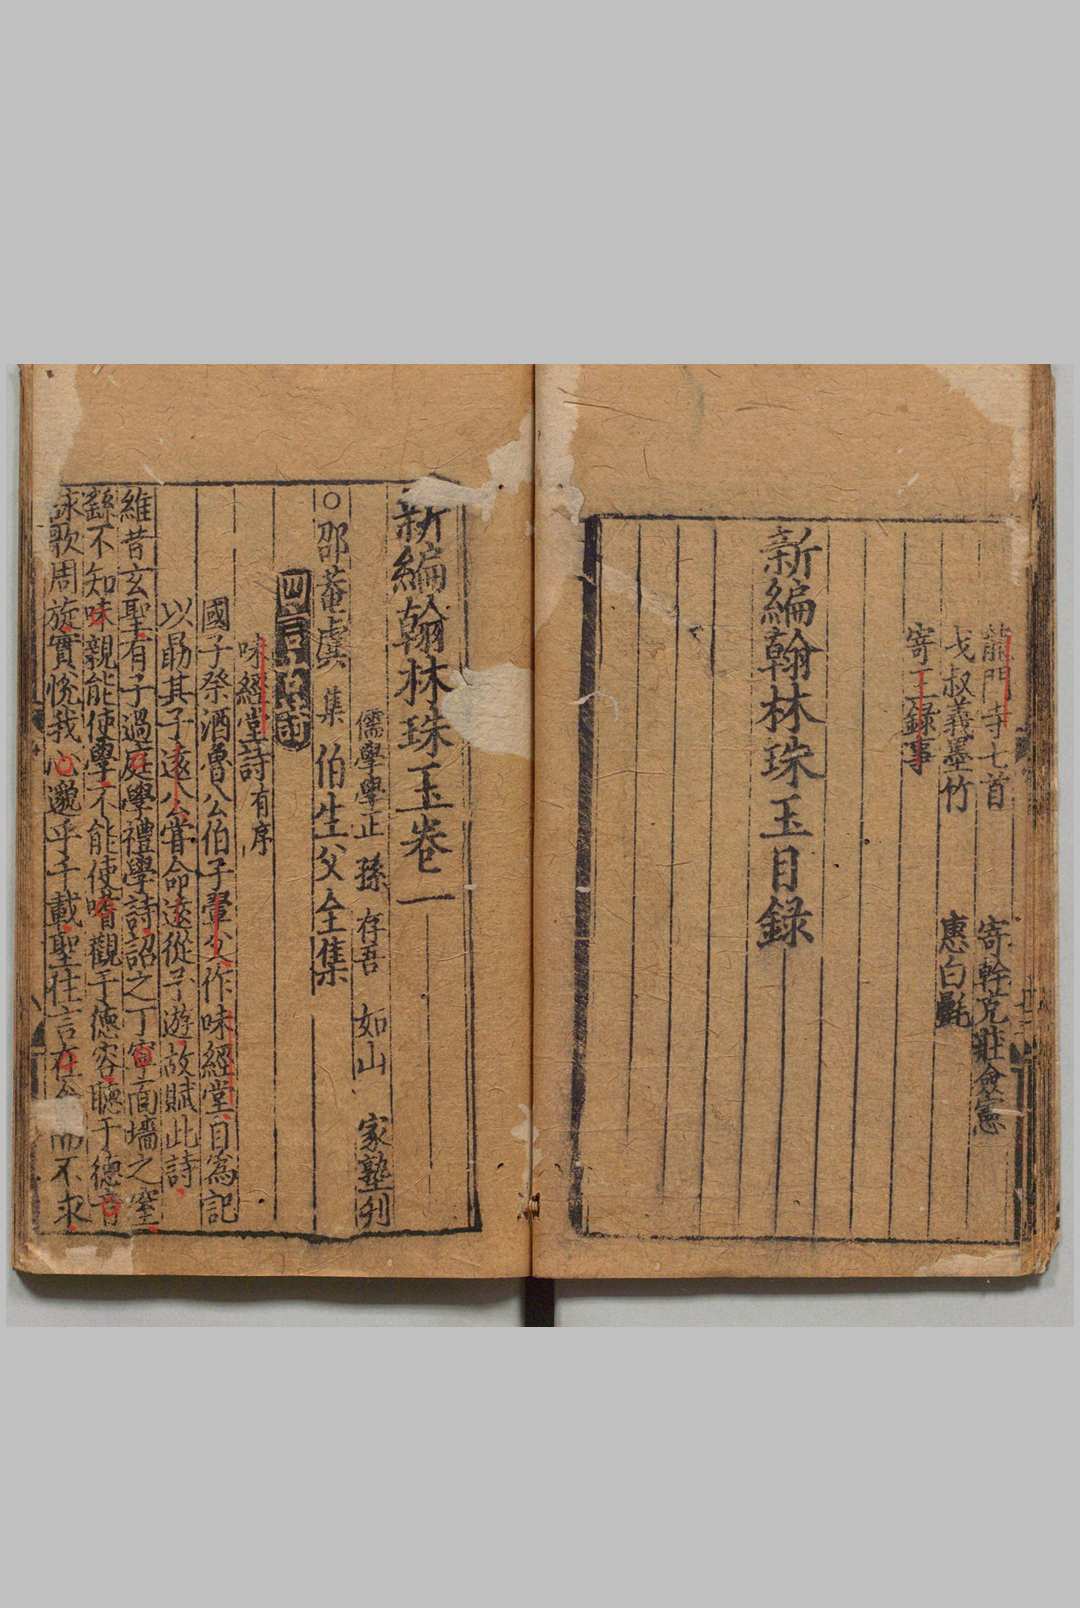 龍門寺七首 寄幹克莊僉憲
戈叔義墨竹 惠白氎
寄王錄事
新編翰林珠玉目録
新編翰林珠玉卷一
儒學學正 孫 存吾 如山 家塾刊
○邵菴虞 集 伯生父全集
四言
味經堂詩有序
國子祭酒魯公伯子翬父作味經堂自為記
以勗其子遠公嘗命遠從予遊故賦此詩
維昔玄聖有子過庭學禮學詩詔之丁寧面墻之窒
繇不知味親能使學不能使嗜觀于德容聽于德音
詠歌周旋實悅我心邈乎千載聖往言在 而不求